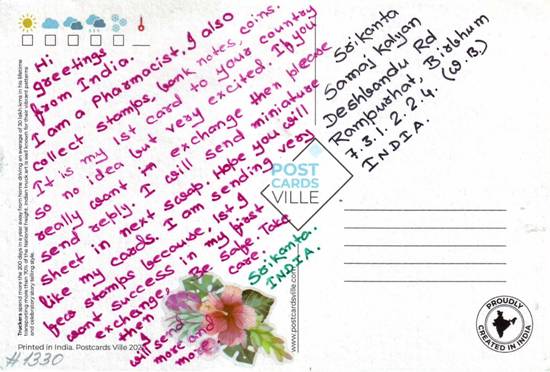 Hi
greetings
from India.
I am a Pharmacist. I also
collect stamps, bank notes, coins.
It is my 1st card to your country
so no idea but very excited. If you
really want in exchange then please
send reply. I will send miniature
sheet in next scoop. Hope you will
like my cards. I am sending very
becs stamps because. 1st I
want success in my first
exchange. Be Safe. Take
care.
then
will send
more and
more
Srikanta.
INDIA.
Srikanta
Samaj Kalyan
Deshbandu Rd
Rampurhat, Birbhum
7.3.1.2.2.4. (W.B.)
INDIA.
POST
CARDS
VILLE
Truckers spend more the 200 days in a year away from home driving an average of 30 lakh kms in his lifetime
transporting more than 70% of the national freight. Indian truck art is well known for their vibrant patterns
and celebratory story telling style.
Printed in India. Postcards Ville 202
#1330
www.postcardsville.com
PROUDLY
CREATED IN INDIA